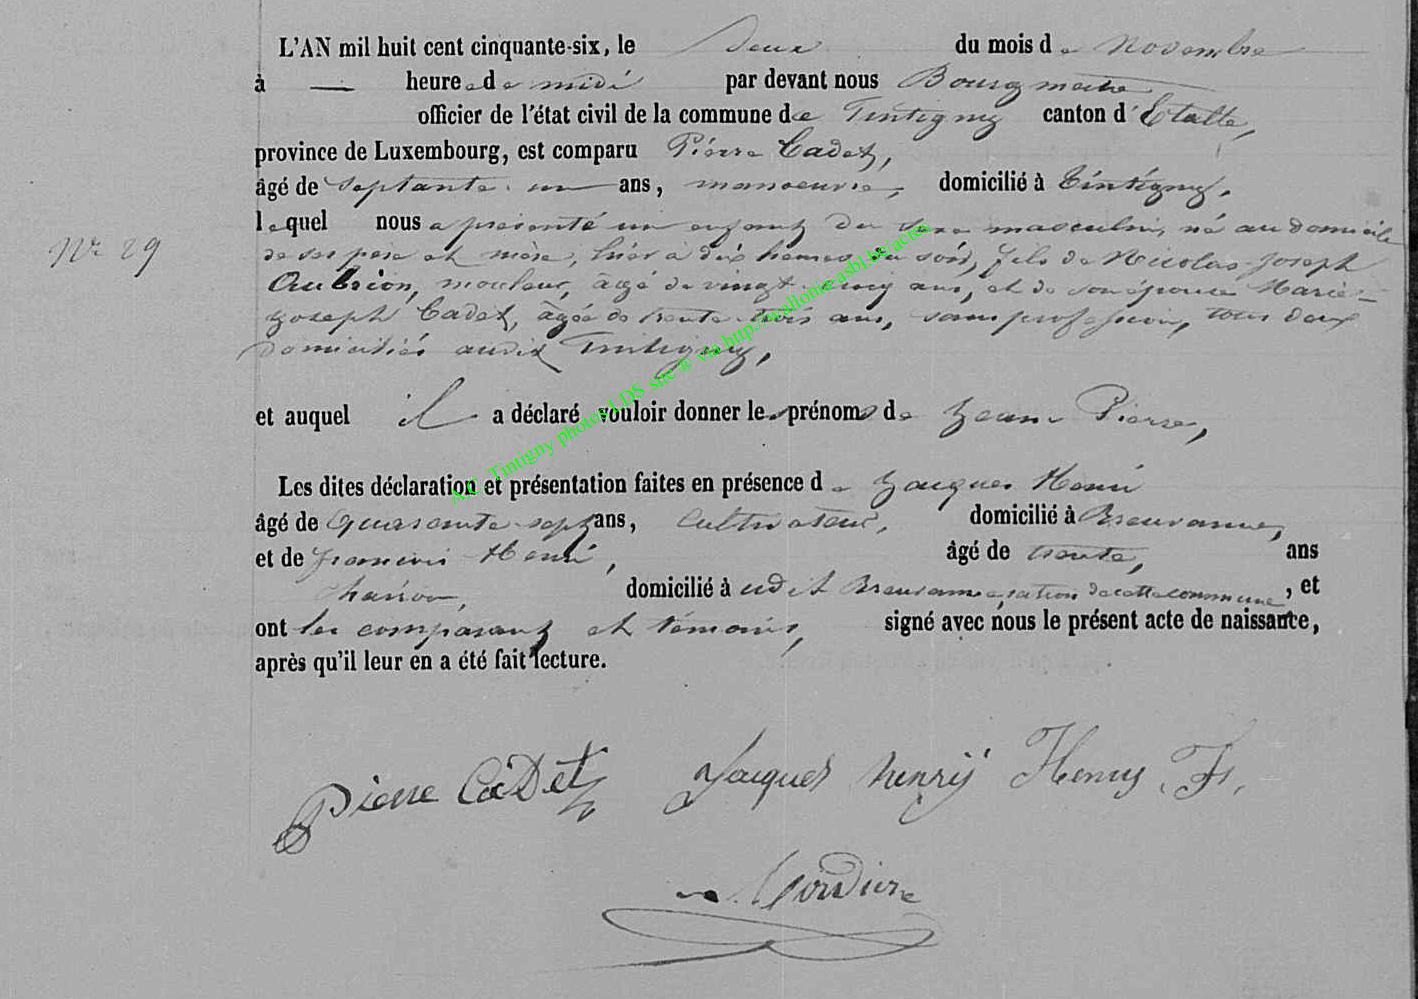 L'AN mil huit cent cinquante-six, le deux du mois de Novembre
à — heure de midi par devant nous Bourgmestre
officier de l'état civil de la commune de Tintigny canton d'Etalle,
province de Luxembourg, est comparu Pierre Cadet,
âgé de septante-un ans, manoeuvre, domicilié à Tintigny,
lequel nous a présenté un enfant du sexe masculin, né au domicile
Nr 29
de ses père et mère, hier à dix heures du soir, fils de Nicolas-Joseph
Aubrion, mouleur, âgé de vingt-cinq ans, et de son épouse Marie-
Joseph Cadet, âgée de trente-trois ans, sans profession, tous deux
domiciliés audit Tintigny,
et auquel il a déclaré vouloir donner les prénoms de Jean-Pierre,
A.C. Tintigny photos LDS site ® via http://wallonia-asbl.be/actes
Les dites déclaration et présentation faites en présence de Jacques Henri
âgé de quarante-sept ans, cultivateur, domicilié à Breuvanne,
et de François Henri, âgé de trente, ans
charron, domicilié à udit Breuvanne, section de cette commune, et
ont les comparant et témoins, signé avec nous le présent acte de naissante,
après qu'il leur en a été fait lecture.
Pierre CaDet Jacques henrij Henry Fs.